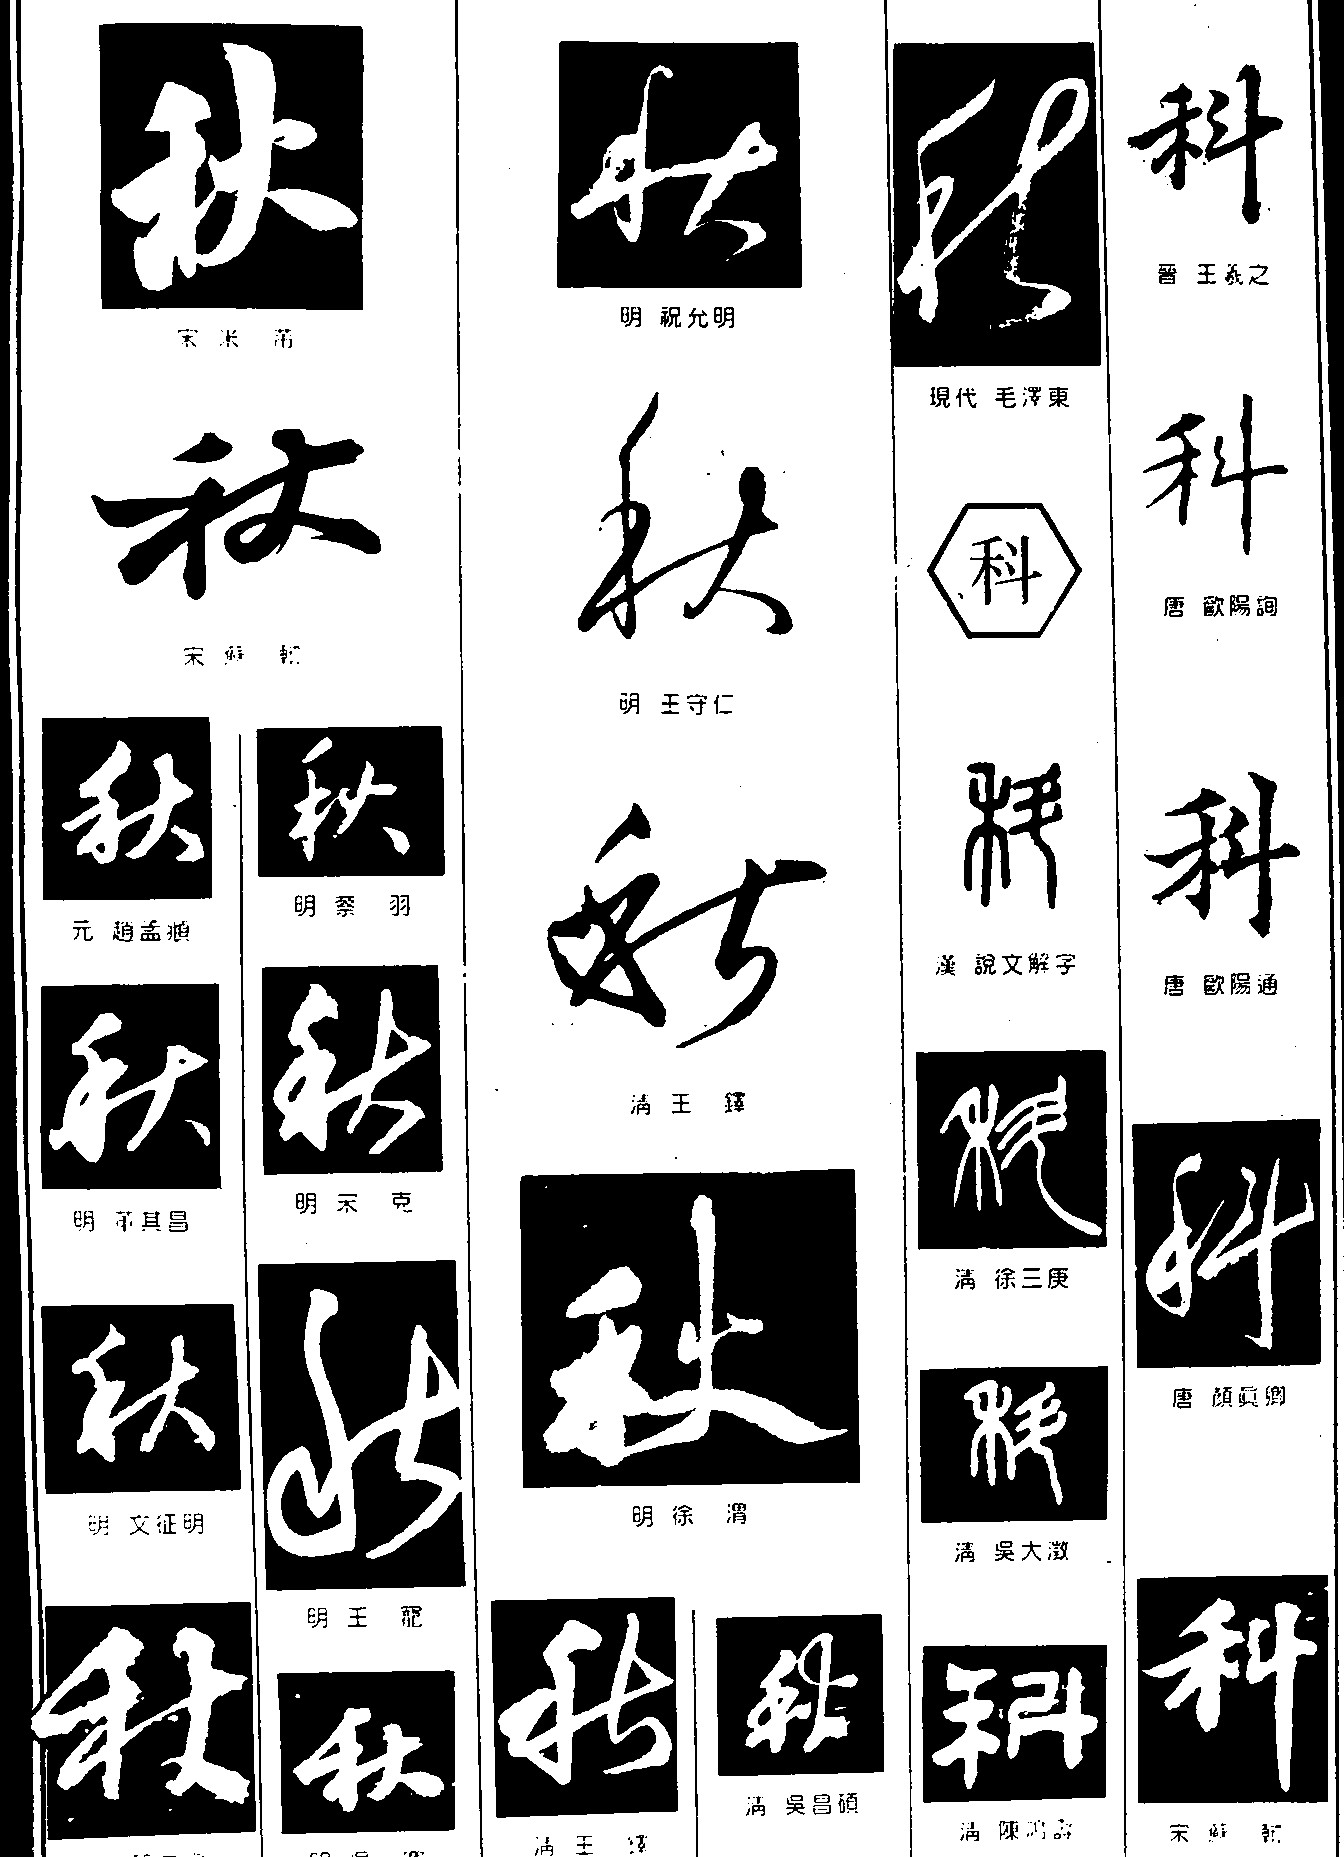 科
晉 王羲之
科
唐 歐陽詢
科
唐 歐陽通
科
唐 顏眞卿
科
宋 蘇 軾
秋
現代 毛澤東
科
科
漢 說文解字
科
清 徐三庚
科
清 吳大澂
科
清 陳鴻壽
秋
明 祝允明
秋
明 王守仁
秋
清 王 鐸
秋
明 徐 渭
秋
清 吳昌碩
秋
清 王 鐸
秋
宋 米 芾
秋
宋 蘇 軾
秋
明 蔡 羽
秋
明 宋 克
秋
明 王 寵
秋
秋
元 趙孟頫
秋
明 董其昌
秋
明 文征明
秋